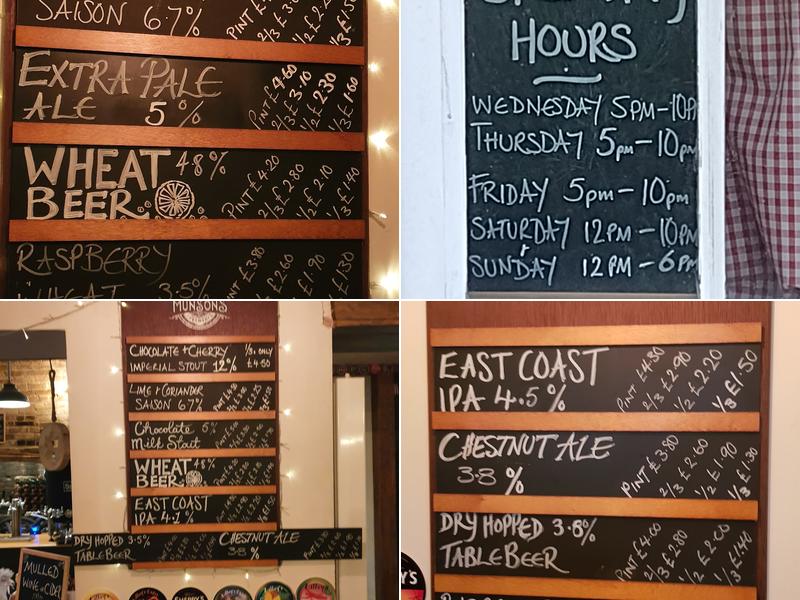 SAISON 6.7%
PINT £
2/3 £
1/2 £2.20
1/3 £1.50
EXTRA PALE
ALE 5%
PINT £4.60
2/3 £3.10
1/2 £2.30
1/3 £1.60
WHEAT 4.8%
BEER
PINT £4.20
2/3 £2.80
1/2 £2.10
1/3 £1.40
RASPBERRY
WHEAT 3.5%
PINT £3.80
2/3 £2.60
1/2 £1.90
1/3 £1.30
HOURS
WEDNESDAY 5PM-10P
THURSDAY 5pm-10pm
FRIDAY 5pm-10pm
SATURDAY 12PM-10PM
SUNDAY 12PM-6PM
MUNSONS
CHOCOLATE + CHERRY 1/3 ONLY
IMPERIAL STOUT 12% £4.50
LIME & CORIANDER
SAISON 6.7%
Chocolate
Milk Stout
WHEAT 4.8%
BEER
EAST COAST
IPA 4.1%
DRY HOPPED 3.5%
TABLE BEER
CHESTNUT ALE
3.8%
MULLED
WINE or CIDER
EAST COAST
IPA 4.5%
PINT £4.30
2/3 £2.90
1/2 £2.20
1/3 £1.50
CHESTNUT ALE
3.8%
PINT £3.80
2/3 £2.60
1/2 £1.90
1/3 £1.30
DRY HOPPED 3.8%
TABLE BEER
PINT £4.00
2/3 £2.80
1/2 £2.00
1/3 £1.40